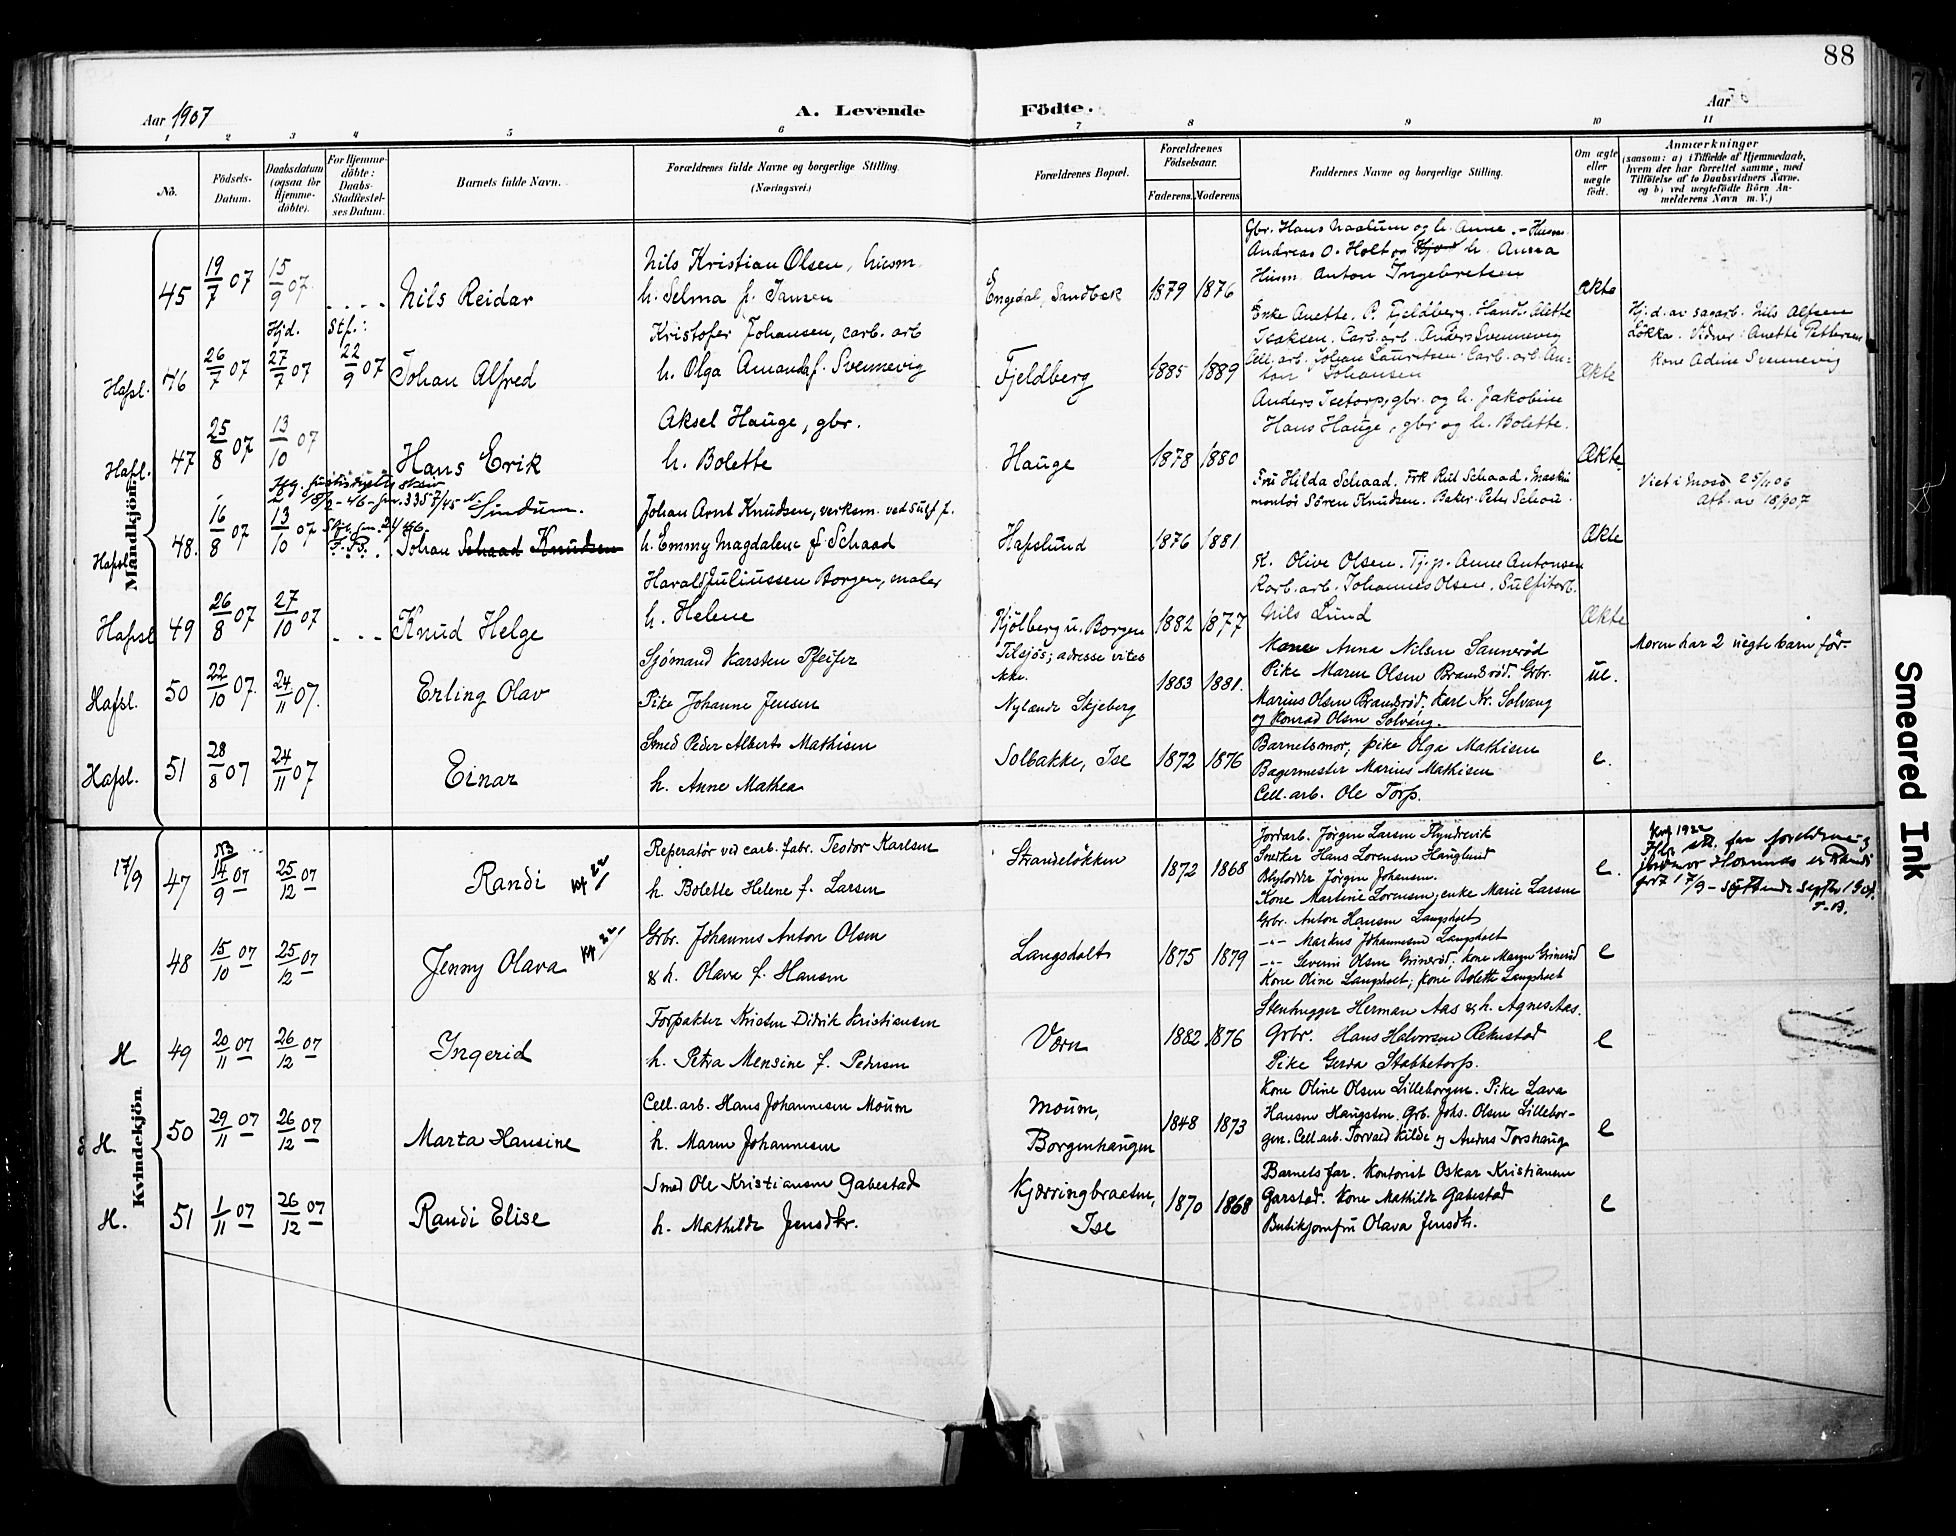 88
Aar 1907
A. Levende Födte.
Aar
1 2 3 4 5 6 7 8 9 10 11
No.
Födsels-Datum.
Daabsdatum (ogsaa för Hjemme-döbte).
For Hjemme-döbte: Daabs-Stadfæstel-ses Datum.
Barnets fulde Navn.
Forældrenes fulde Navne og borgerlige Stilling. (Næringsvei.)
Forældrenes Bopæl.
Forældrenes Födselsaar.
Faderens. Moderens.
Faddernes Navne og borgerlige Stilling.
Om ægte eller uægte födt.
Anmærkninger
(saasom: a) i Tilfælde af Hjemmedaab, hvem der har forrettet samme, med Tilföielse af to Daabsvidners Navne, og b) ved uægtefödte Börn An-melderens Navn m. V.)
Mandkjön.
45 19/7 07 15/9 07. Nils Reidar
Nils Kristian Olsen, husm.
h. Selma f. Jansen
Engedal, Sandbæk 1879 1876
Gbr. Hans Naalum og h. Anne. - Husm.
Andreas O. Holt og h. Anna
Husm. Anton Ingebretsen
Ækte
Hafsl. 46 26/7 07 Hjd. 27/7 07 Stf.: 22/9 07 Johan Alfred
Kristofer Johansen, carb. arb
h. Olga Amanda f. Svennevig
Fjeldberg 1885 1889
Enke Anette. P. Fjeldberg. Handl. Alette
Isaksen. Carb. arb. Anders Svennevig
Cell. arb. Johan Lauritsen. Carb. arb. An-
ton Johansen
Ækte
Hj. d. av sagarb. Nils Alfsen
Løkka. Vidner: Anette Pettersen
kone Adine Svennevig
Hafsl. 47 25/8 07 13/10 07 Hans Erik
Aksel Hauge, gbr.
h. Bolette
Hauge 1878 1880
Anders Isetorp, gbr. og h. Jakobine
Hans Hauge, gbr og h. Bolette.
Ækte
Hafsl. 48. 16/8 07 13/10 07 Sindum.
Johan Schaad Knudsen
Johan Arnt Knudsen, verksm. ved sulf f.
h. Emmy Magdalene f Schaad
Hafslund 1876 1881
Fru Hilda Schaad. Frk Rut Schaad. Maskin
montør Sören Knudsen. Baker Peter Schou.
Ækte
Viet i Moss 25/11 06
Att. av 18/9 07
Hafsl 49 26/8 07 27/10 07 Knud Helge
Harald Juliussen Borgen, maler
h. Helene
Kjölberg u. Borgen 1882 1877
K. Olive Olsen. Tj. p. Anne Antonsen
Karb. arb. Johannes Olsen. Sulfitarb.
Nils Lund
Ækte
Hafsl. 50 22/10 07. 24/11 07. Erling Olav
Sjömand Karsten Pfeifer
Pike Johanne Jensen
Tilsjös; adresse vites
ikke.
Nylænde Skjeberg
1883 1881.
Kone Anna Nilsen Sannerød
Pike Maren Olsen Brandsrød. Grbr.
Marius Olsen Brandsrød. Karl Kr. Solvang
og Konrad Olsen Solvang.
ue.
Moren har 2 uegte barn før-
Hafsl. 51 28/8 07 24/11 07 Einar
Smed Peder Alberts Mathisen
h. Anne Mathea
Solbakke, Ise 1872 1876
Barnetsmor, pike Olga Mathisen
Bagermester Marius Mathisen
Cell. arb. Ole Torp.
e.
Kvindekjön.
17/9 47 14/9 07 25/12 07 Randi kf 22
Reperatør ved carb. fabr. Teodor Karlsen
h. Bolette Helene f. Larsen
Strandeløkken 1872 1868
Jordarb. Jørgen Larsen Flyndrevik
Snekker Hans Lorensen Hauglund
Jørgen Johansen.
Kone Martine Lorensen, enke Marie Larsen
e.
Krf 1922
født 17/9 - syttende septbr 1907.
T. B.
48 15/10 07 25/12 07 Jenny Olava kf 22
Grbr. Johannes Anton Olsen
& h. Olava f. Hansen
Langsholt 1875 1879
Grbr. Anton Hansen Langsholt
-"- Markus Johannesen Langsholt
-"- Severin Olsen Grinerød; kone Maren Grinerød
Kone Oline Langsholt; kone Bolette Langsholt
e
H 49 20/11 07 26/12 07 Ingerid
Forpakter Didrik Kristiansen
h. Petra Mensine f. Pedersen
Værn 1882 1876
Stenhugger Herman Aas & h. Agnes Aas.
Grbr. Hans Halvorsen Rekustad
Pike Gerda Stabbetorp.
e
H. 50 29/11 07 26/12 07 Marta Hansine
Cell. arb. Hans Johannesen Moum
h. Maren Johannesen
Moum,
Borgenhaugen
1848 1873
Kone Oline Olsen Lilleborgen. Pike Lava
Hansen Haugsten. Grb. Johs. Olsen Lillebor-
gen. Cell. arb. Torvald Kilde og Anders Torshaug
e
H. 51 1/11 07 26/12 07 Randi Elise
Smed Ole Kristiansen Gabestad
h. Mathilde Jensdtr.
Kjærringbraaten,
Ise
1870 1868
Barnets far. Kontorist Oskar Kristiansen
Garstad. Kone Mathilde Gabestad
Butikjomfru Olava Jensdtr.
e
Smeared Ink